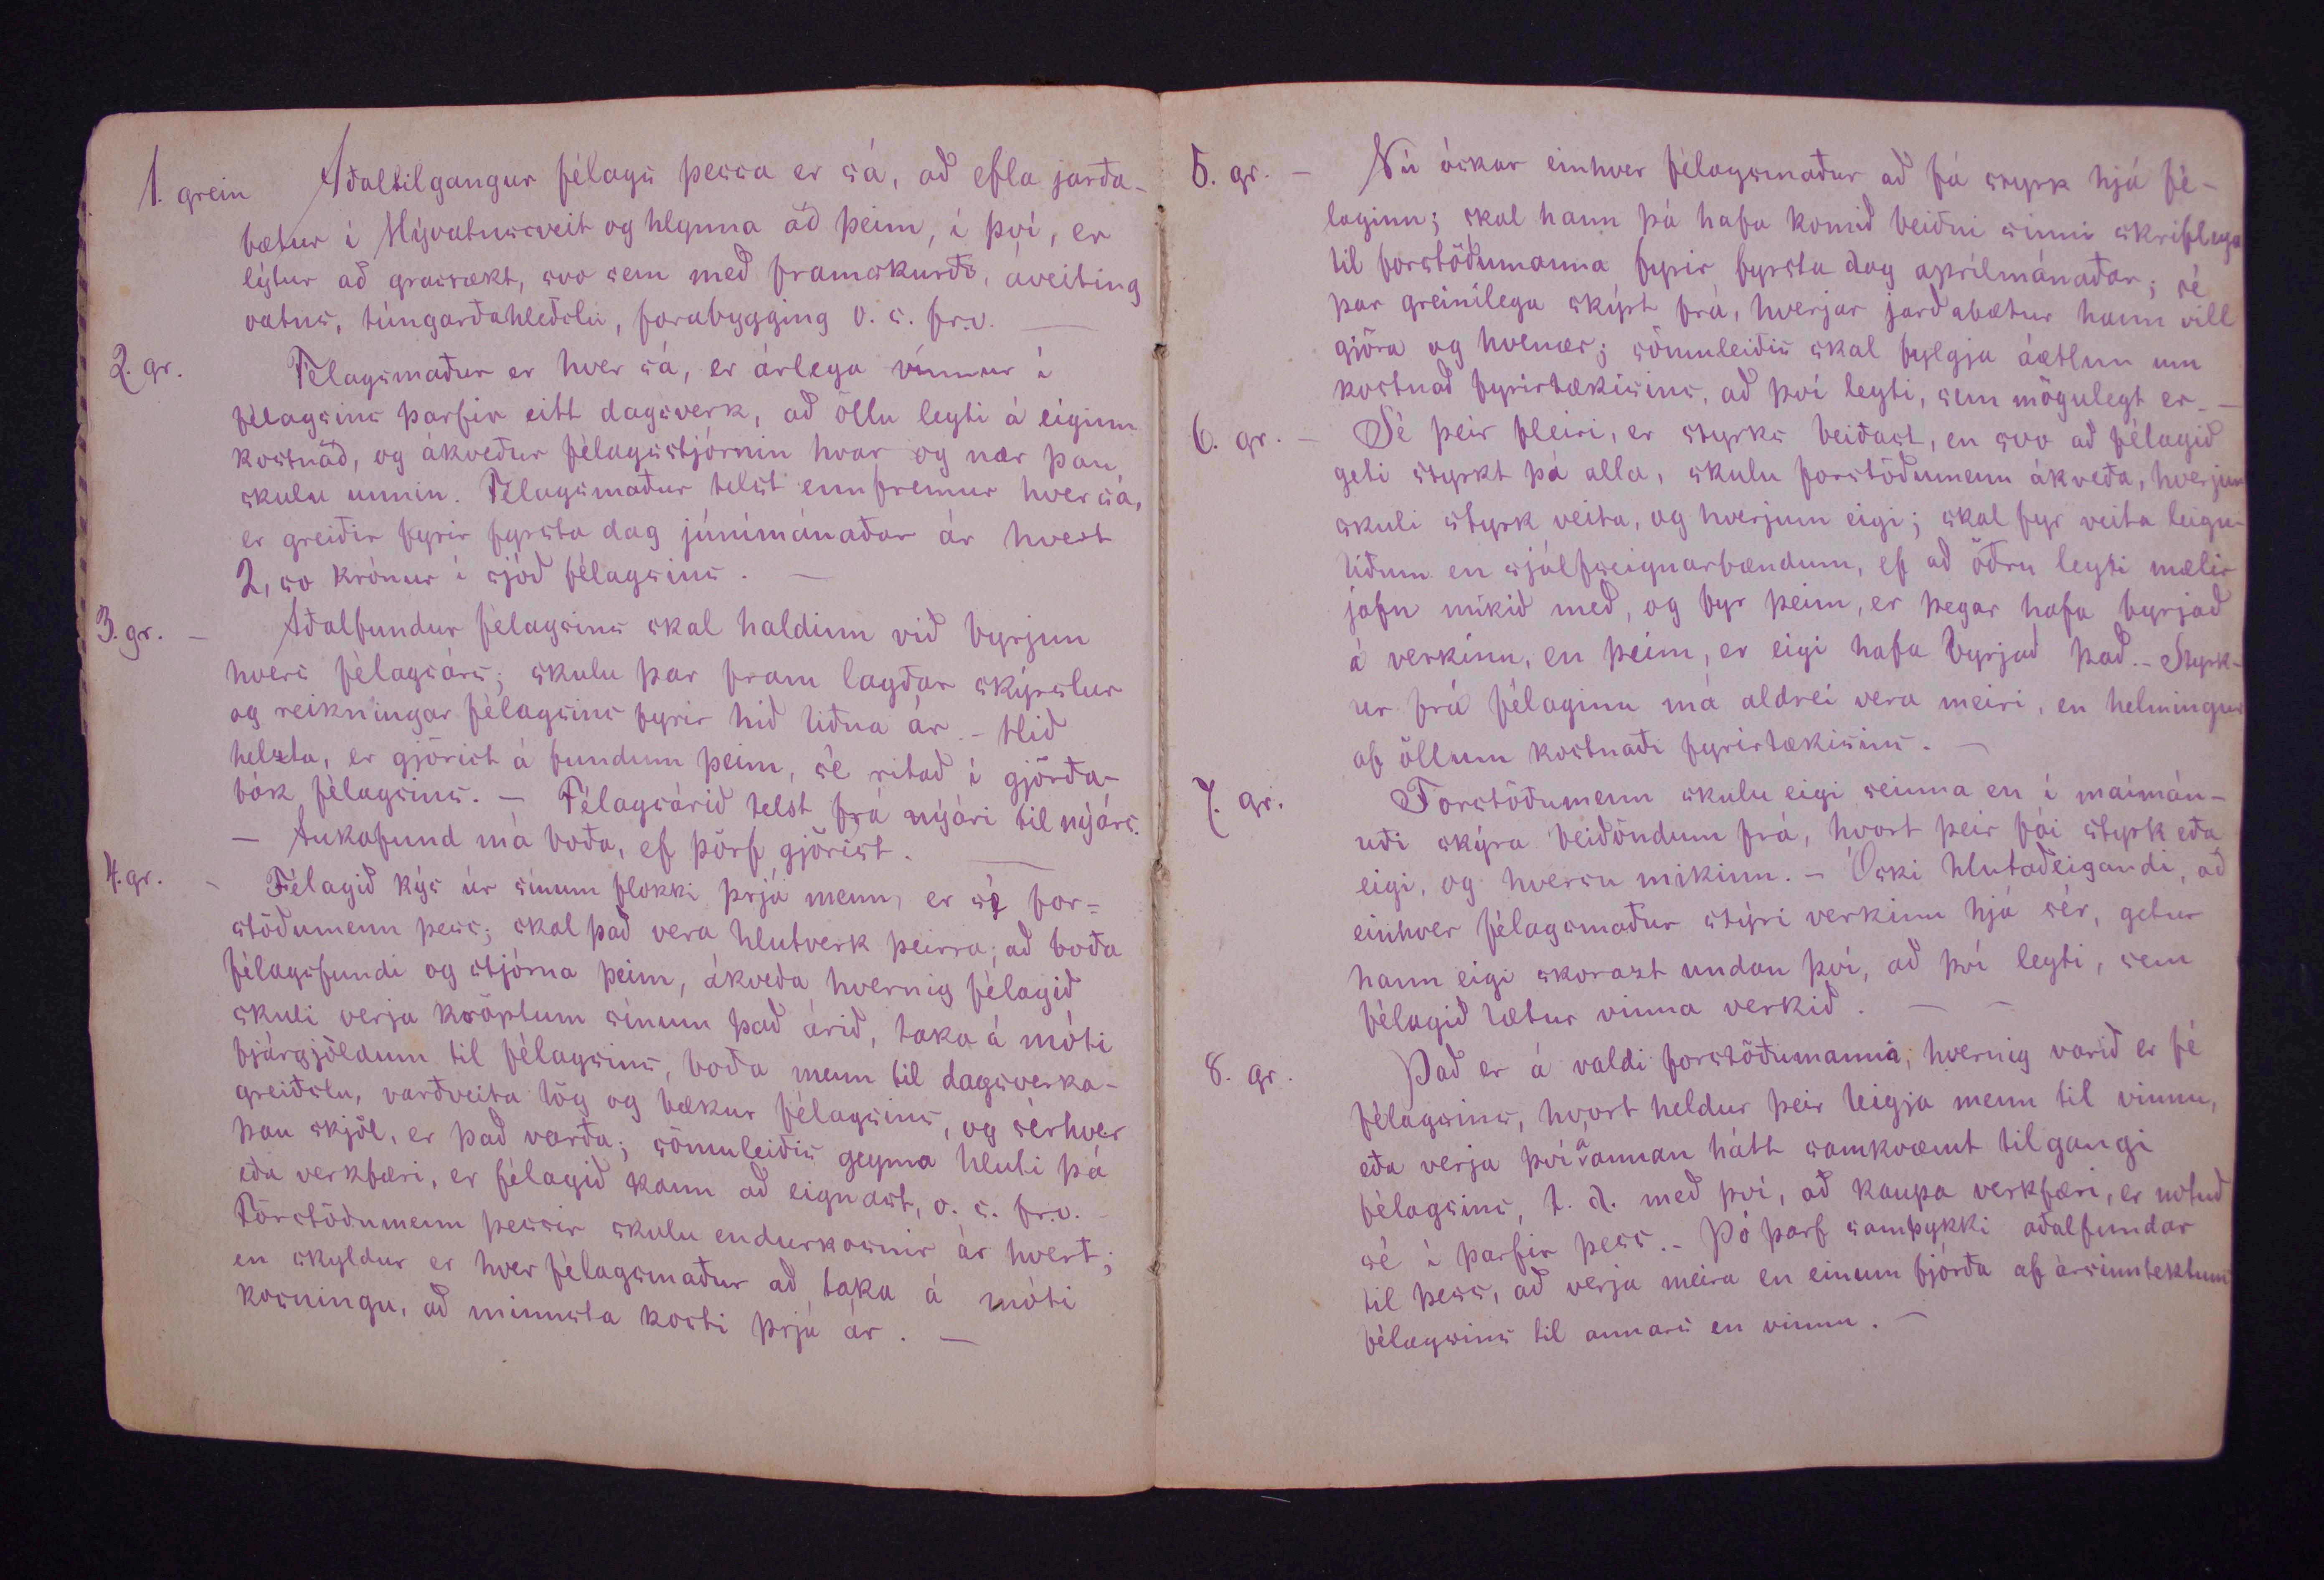 1. grein Aðaltilgangur félags þessa er sá, að efla jarða-
bætur í Mývatnssveit og hlynna að þeim, í því, er
lýtur að grasrækt, svo sem með framskurði, áveiting
vatns, túngarðahleðslu, forabygging o. s. fr.v. —
2. gr. Félagsmaður er hver sá, er árlega vinnur í
félagsins þarfir eitt dagsverk, að öllu leyti á eiginn
kostnað, og ákveður félagsstjórnin hvar og nær þau
skulu unnin. Félagsmaður telst ennfremur hver sá,
er greiðir fyrir fyrsta dag júnímánaðar ár hvert
2,50 krónur í sjóð félagsins. —
3. gr. — Aðalfundur félagsins skal haldinn við byrjun
hvers félagsárs; skulu þar fram lagðar skýrslur
og reikningar félagsins fyrir hið liðna ár. – Hið
helzta, er gjörist á fundum þeim, sé ritað í gjörða-
bók félagsins. – Félagsárið telst frá nýári til nýárs.
— Aukafund má boða, ef þörf gjörist. —
4. gr. - Félagið kýs úr sínum flokki þrjá menn, er sé for=
stöðumenn þess; skal það vera hlutverk þeirra, að boða
félagsfundi og stjórna þeim, ákveða hvernig félagið
skuli verja kröptum sínum það árið, taka á móti
fjárgjöldum til félagsins, boða menn til dagsverka-
greiðslu, varðveita lög og bækur félagsins, og sérhver
þau skjöl, er það varða; sömuleiðis geyma hluti þá
eða verkfæri, er félagið kann að eignast, o. s. fr.v. –
Forstöðumenn þessir skulu endurkosnir ár hvert;
en skyldur er hver félagsmaður að taka á móti
kosningu, að minnsta kosti þrjú ár. —
5. gr. — Nú óskar einhver félagsmaður að fá styrk hjá fé-
laginu; skal hann þá hafa komið beiðni sinni skriflega
til forstöðumanna fyrir fyrsta dag aprílmánaðar; sé
þar greinilega skýrt frá, hverjar jarðabætur hann vill
gjöra og hvenær; sömuleiðis skal fylgja áætlun um
kostnað fyrirtækisins, að því leyti, sem mögulegt er. —
6. gr. — Sé þeir fleiri, er styrks beiðast, en svo að félagið
geti styrkt þá alla, skulu forstöðumenn ákveða, hverjum
skuli styrk veita, og hverjum eigi; skal fyr veita leigu-
liðum en sjálfseignarbændum, ef að öðru leyti mælir
jafn mikið með, og fyr þeim, er þegar hafa byrjað
á verkinu, en þeim, er eigi hafa byrjað það. – Styrk-
ur frá félaginu má aldrei vera meiri, en helmingur
af öllum kostnaði fyrirtækisins. —
7. gr. Forstöðumenn skulu eigi seinna en í maímán-
uði skýra beiðöndum frá, hvort þeir fái styrk eða
eigi, og hversu mikinn. – Óski hlutaðeigandi, að
einhver félagsmaður stýri verkinu hjá sér, getur
hann eigi skorazt undan því, að því leyti, sem
félagið lætur vinna verkið. — —
8. gr. Það er á valdi forstöðumanna, hvernig varið er fé
félagsins, hvort heldur þeir leigja menn til vinnu,
eða verja því á annan hátt samkvæmt tilgangi
félagsins, t. d. með því, að kaupa verkfæri, er notuð
sé í þarfir þess. – Þó þarf samþykki aðalfundar
til þess, að verja meira en einum fjórða af ársinntektum
félagsins til annars en vinnu. —